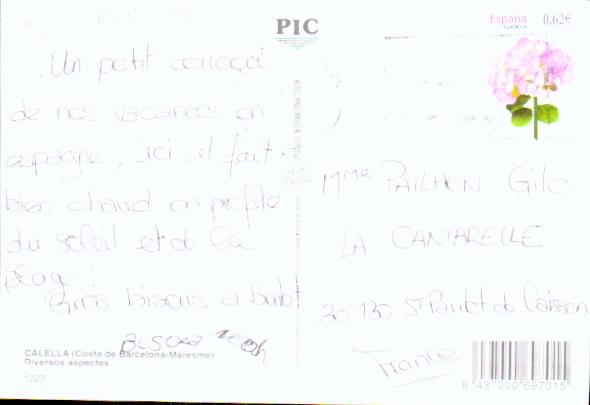 PIC
España
0,62€
Un petit coucou
de nos vacances en
espagne, ici il fait
bien chaud on profite
du soleil et de la
plage
Gros bisous a bientot
Mme PAILHON Gilo
LA CANTARELLE
30 130 St Paulet de Caisson
France
CALELLA (Costa de Barcelona-Maresme)
Diversos aspectes
1227
8 437000 697015